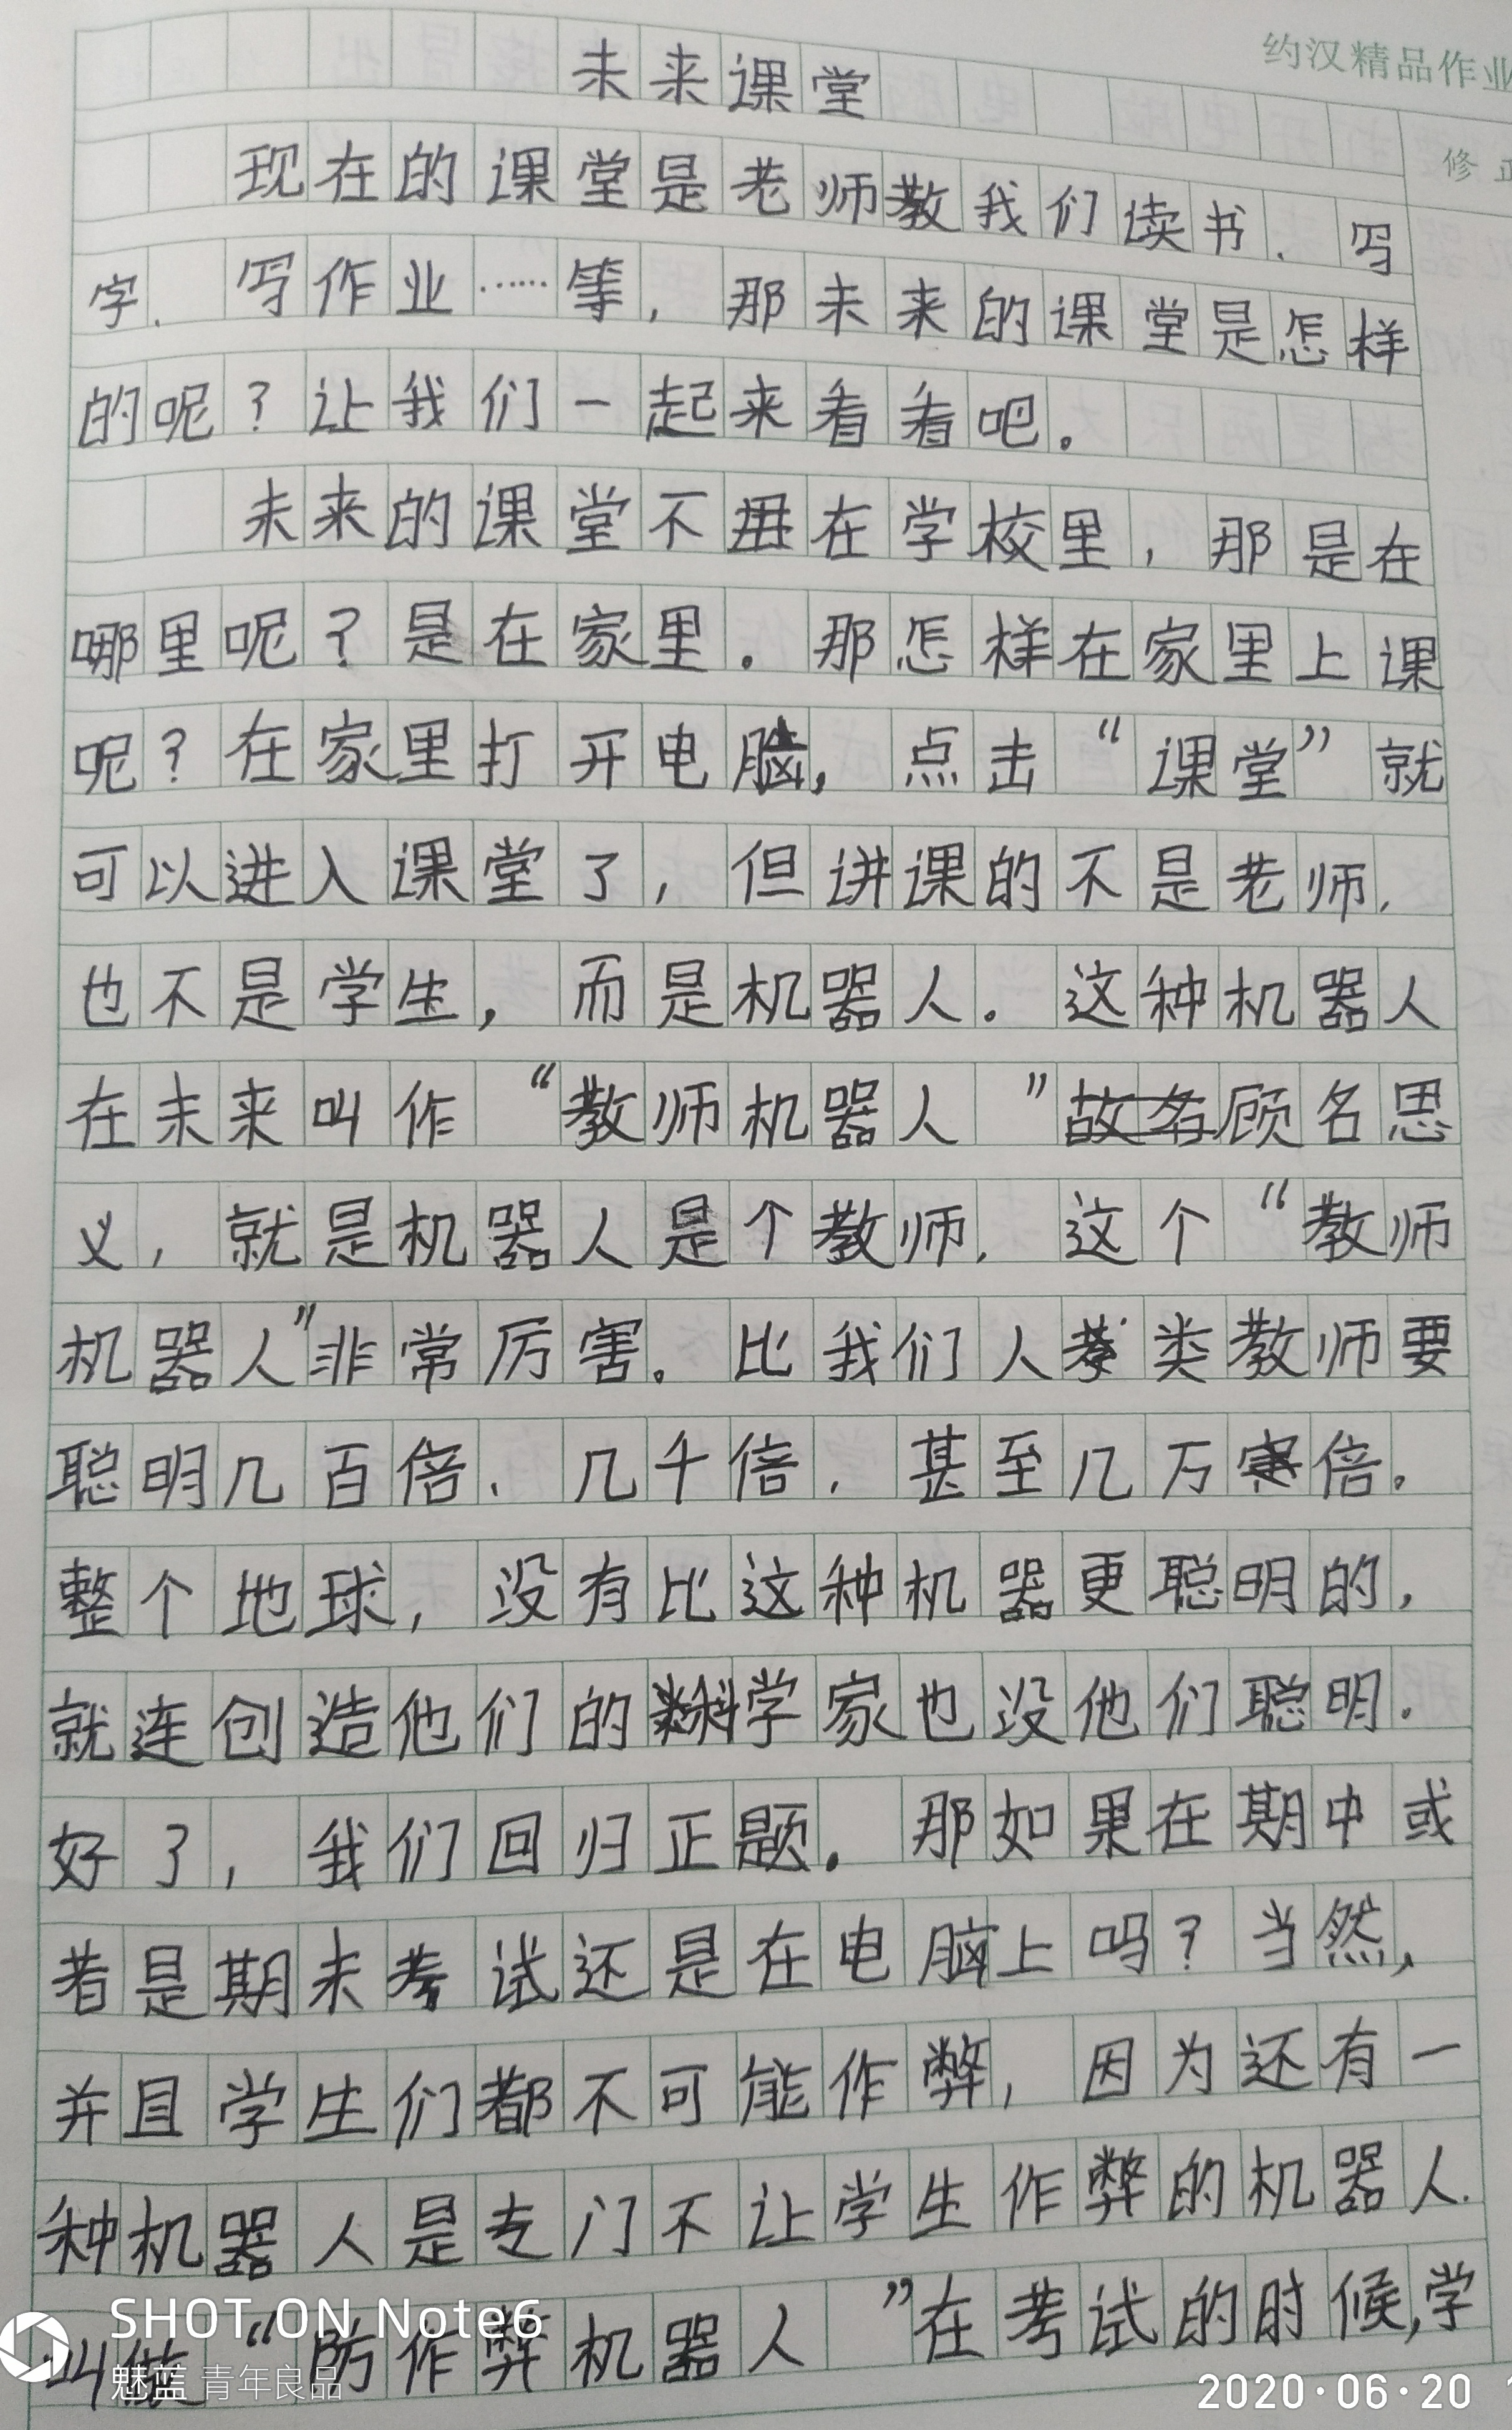 约汉精品作业
未来课堂
修正
现在的课堂是老师教我们读书、写
字、写作业……等，那未来的课堂是怎样
的呢？让我们一起来看看吧。
未来的课堂不在学校里，那是在
哪里呢？是在家里。那怎样在家里上课
呢？在家里打开电脑，点击“课堂”就
可以进入课堂了，但讲课的不是老师，
也不是学生，而是机器人。这种机器人
在未来叫作“教师机器人”顾名思
义，就是机器人是个教师，这个“教师
机器人”非常厉害。比我们人类教师要
聪明几百倍、几千倍，甚至几万倍。
整个地球，没有比这种机器更聪明的，
就连创造他们的科学家也没他们聪明。
好了，我们回归正题。那如果在期中或
者是期末考试还是在电脑上吗？当然，
并且学生们都不可能作弊，因为还有一
种机器人是专门不让学生作弊的机器人.
叫做“防作弊机器人”在考试的时候,学
SHOT ON Note6
魅蓝 青年良品
2020·06·20